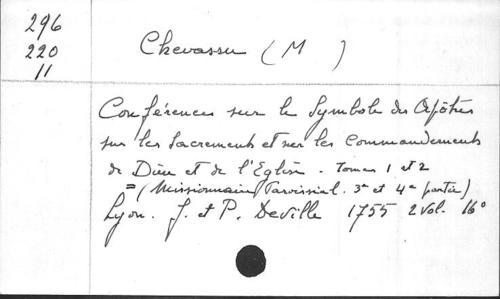 296
220
11
Chevassu ( M )
Conférences sur le Symbole des Apôtres
sur les Sacrements et sur les Commandements
de Dieu et de l'Eglise. Tomes 1 et 2
= (Missionnaire Paroissial. 3e et 4e partie)
Lyon. J. et P. Deville 1755 2 vol. 16°